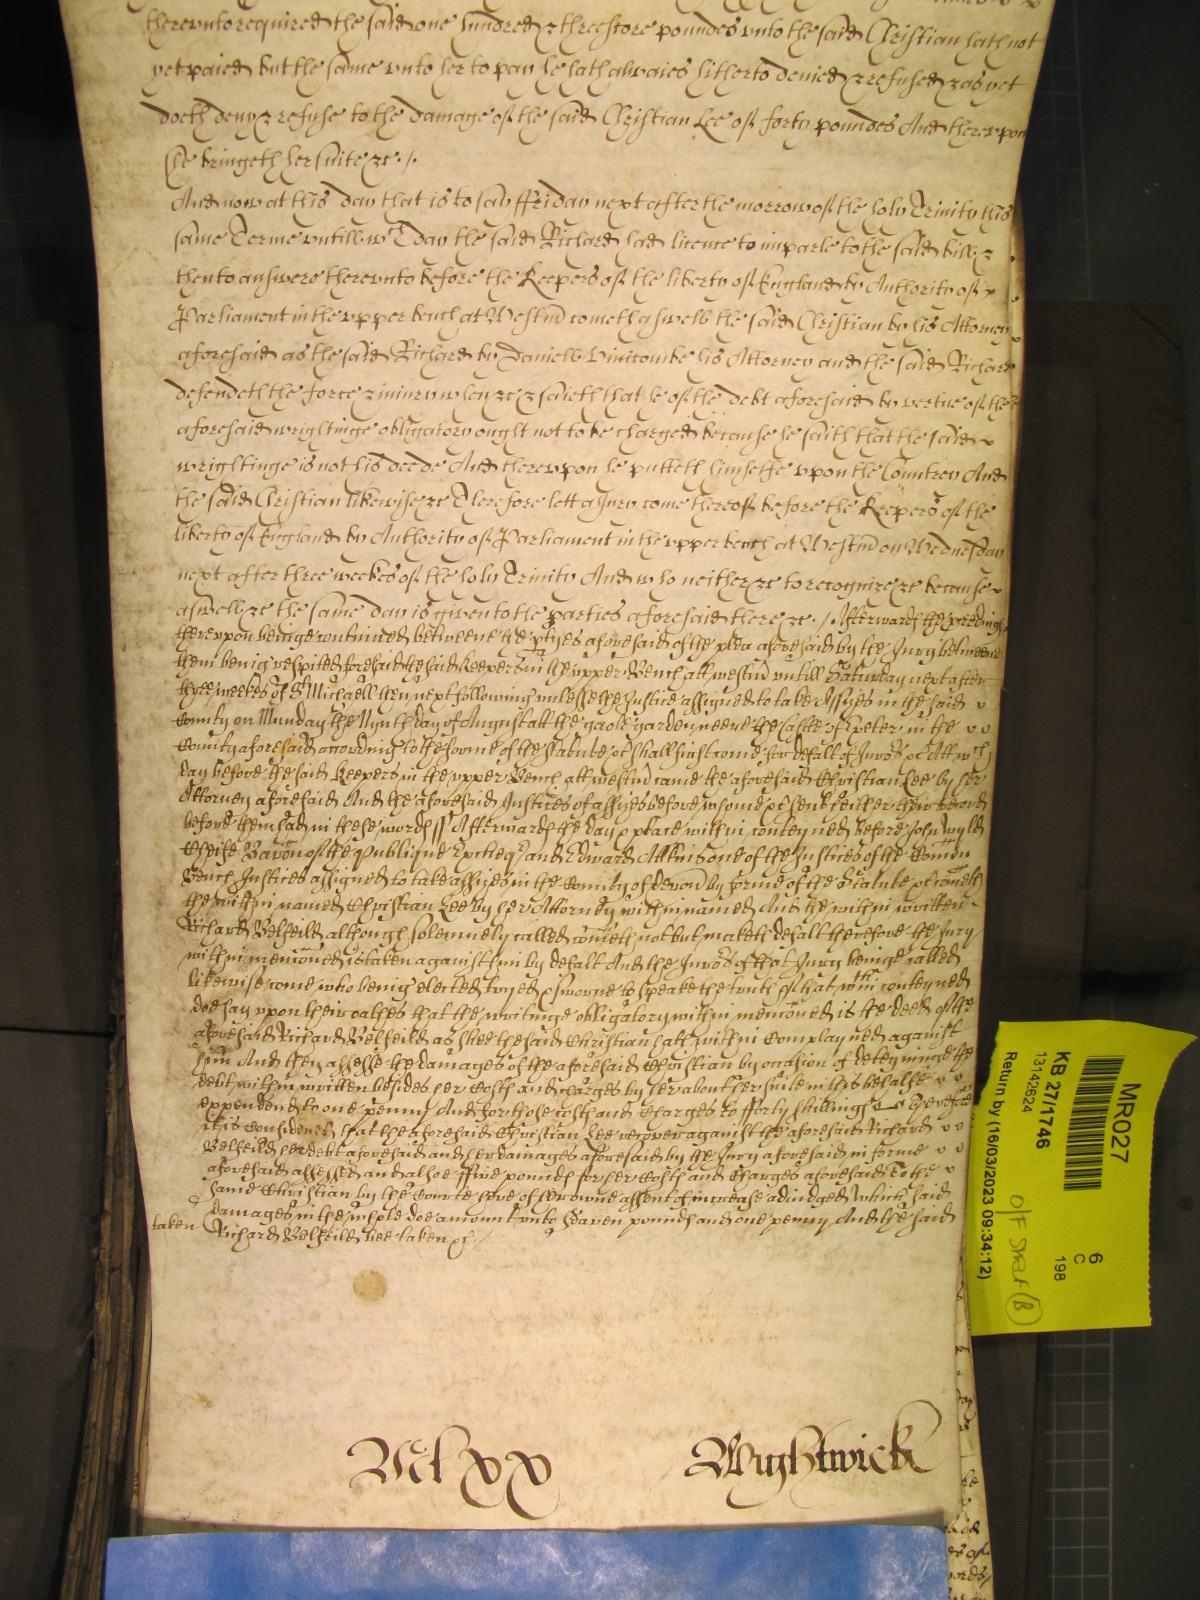 therevnto required the said one hundred & threescore poundes vnto the said Christian hath not
yet paied but the same vnto her to pay he hath alwaies hitherto denied & refused & as yet
doeth deny & refuse to the damage of the said Christian Lee of forty poundes And therevpon
she bringeth her suite &c ./.
And now at this day that is to say ffriday next after the morrow of the holy Trinity this
same Terme vntill wch day the said Richard had licence to imparle to the said bill &
then to answere therevnto before the Keepers of the liberty of England by Authority of
Parliament in the vpper bench at Westmd cometh aswell the said Christian by his Attorney
aforesaid as the said Richard by Daniell Vinicombe his Attorney and the said Richard
defendeth the force & iniury when &c & saieth that he of the debt aforesaid by vertue of the
aforesaid wrightinge obligatory ought not to be charged because he saith that the said
wrightinge is not his deede And therevpon he putteth himselfe vpon the Countrey And
the said Christian likewise &c Therefore lett a Jury come thereof before the Keepers of the
liberty of England by Authority of Parliament in the vpper bench at Westmd on Wednesday
next after three weekes of the holy Trinity And who neither &c to recognize &c because
aswell &c the same day is given to the parties aforesaid there &c ./. Afterwards the
therevpon beinge continued betweene the ptyes aforesaid of the plea aforesaid by the Jury betweene
them beinge respited before the said Keepers in the vpper Bench att westmd vntill Saturday next after
three weekes of St Michaell then next following vnlesse the Justices assigned to take Assizes in the said
County on Munday the Nynth day of August att the gaole garden neere the Castle of Exeter in the
County aforesaid according to the forme of the Statute &c shall first come for defalt of Jurors &c Att wch
day before the said Keepers in the vpper Bench att westmd came the aforesaid Christian Lee by her
Attorney aforesaid And the aforesaid Justices of assizes before whome &c sent hether their record
before them had in these words ss Afterwards the day & place within conteyned before John Wyld
Cheife Baron of the Publique Excheqr and Edward Atkins one of the Justices of the Comon
Bench Justices assigned to take assizes in the County of devon by forme of the Statute &c cometh
the within named Christian Lee by her Attorney within named And the within written
Richard Belfeild although solemnely called cometh not but maketh defalt therefore the Jury
within mencioned is taken against him by defalt And the Jurors of that Jury beinge called
likewise come who beinge elected tryed & sworne to speake the truth of that wthin conteyned
doe say vpon their oathes that the writinge obligatory within mencioned is the deed of the
aforesaid Richard Belfeild as shee the said Christian hath within complayned against
him And they assesse the damages of the aforesaid Christian by occasion of deteyninge the
debt within written besides her Costs and charges by her about her suite in this behalfe
expended to one penny And for those costs and Charges to fforty shillings Therefore
it is considered that the aforesaid Christian Lee recover against the aforesaid Richard
Belfeild her debt aforesaid and her damages aforesaid by the Jury aforesaid in forme
aforesaid assessed and alsoe ffive pounds for her Costs and Charges aforesaid to the
same Christian by the Courte here of her owne assent of increase adiudged Which said
damages in the whole doe amount vnto Seaven pounds and one penny And the said
taken Richard Belfeild bee taken &c ./.
Ml xx Wightwick
MR027
KB 27/1746
13142624
Return by (16/03/2023 09:34:12)
6
C
198